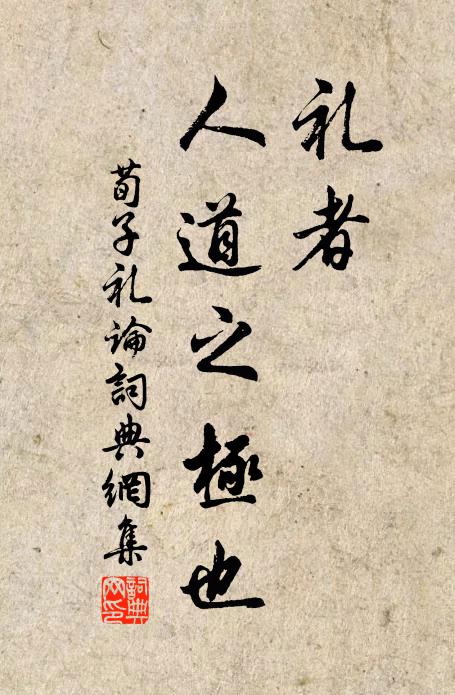 礼者
人道之極也
荀子礼論詞典網集
詞典
网印